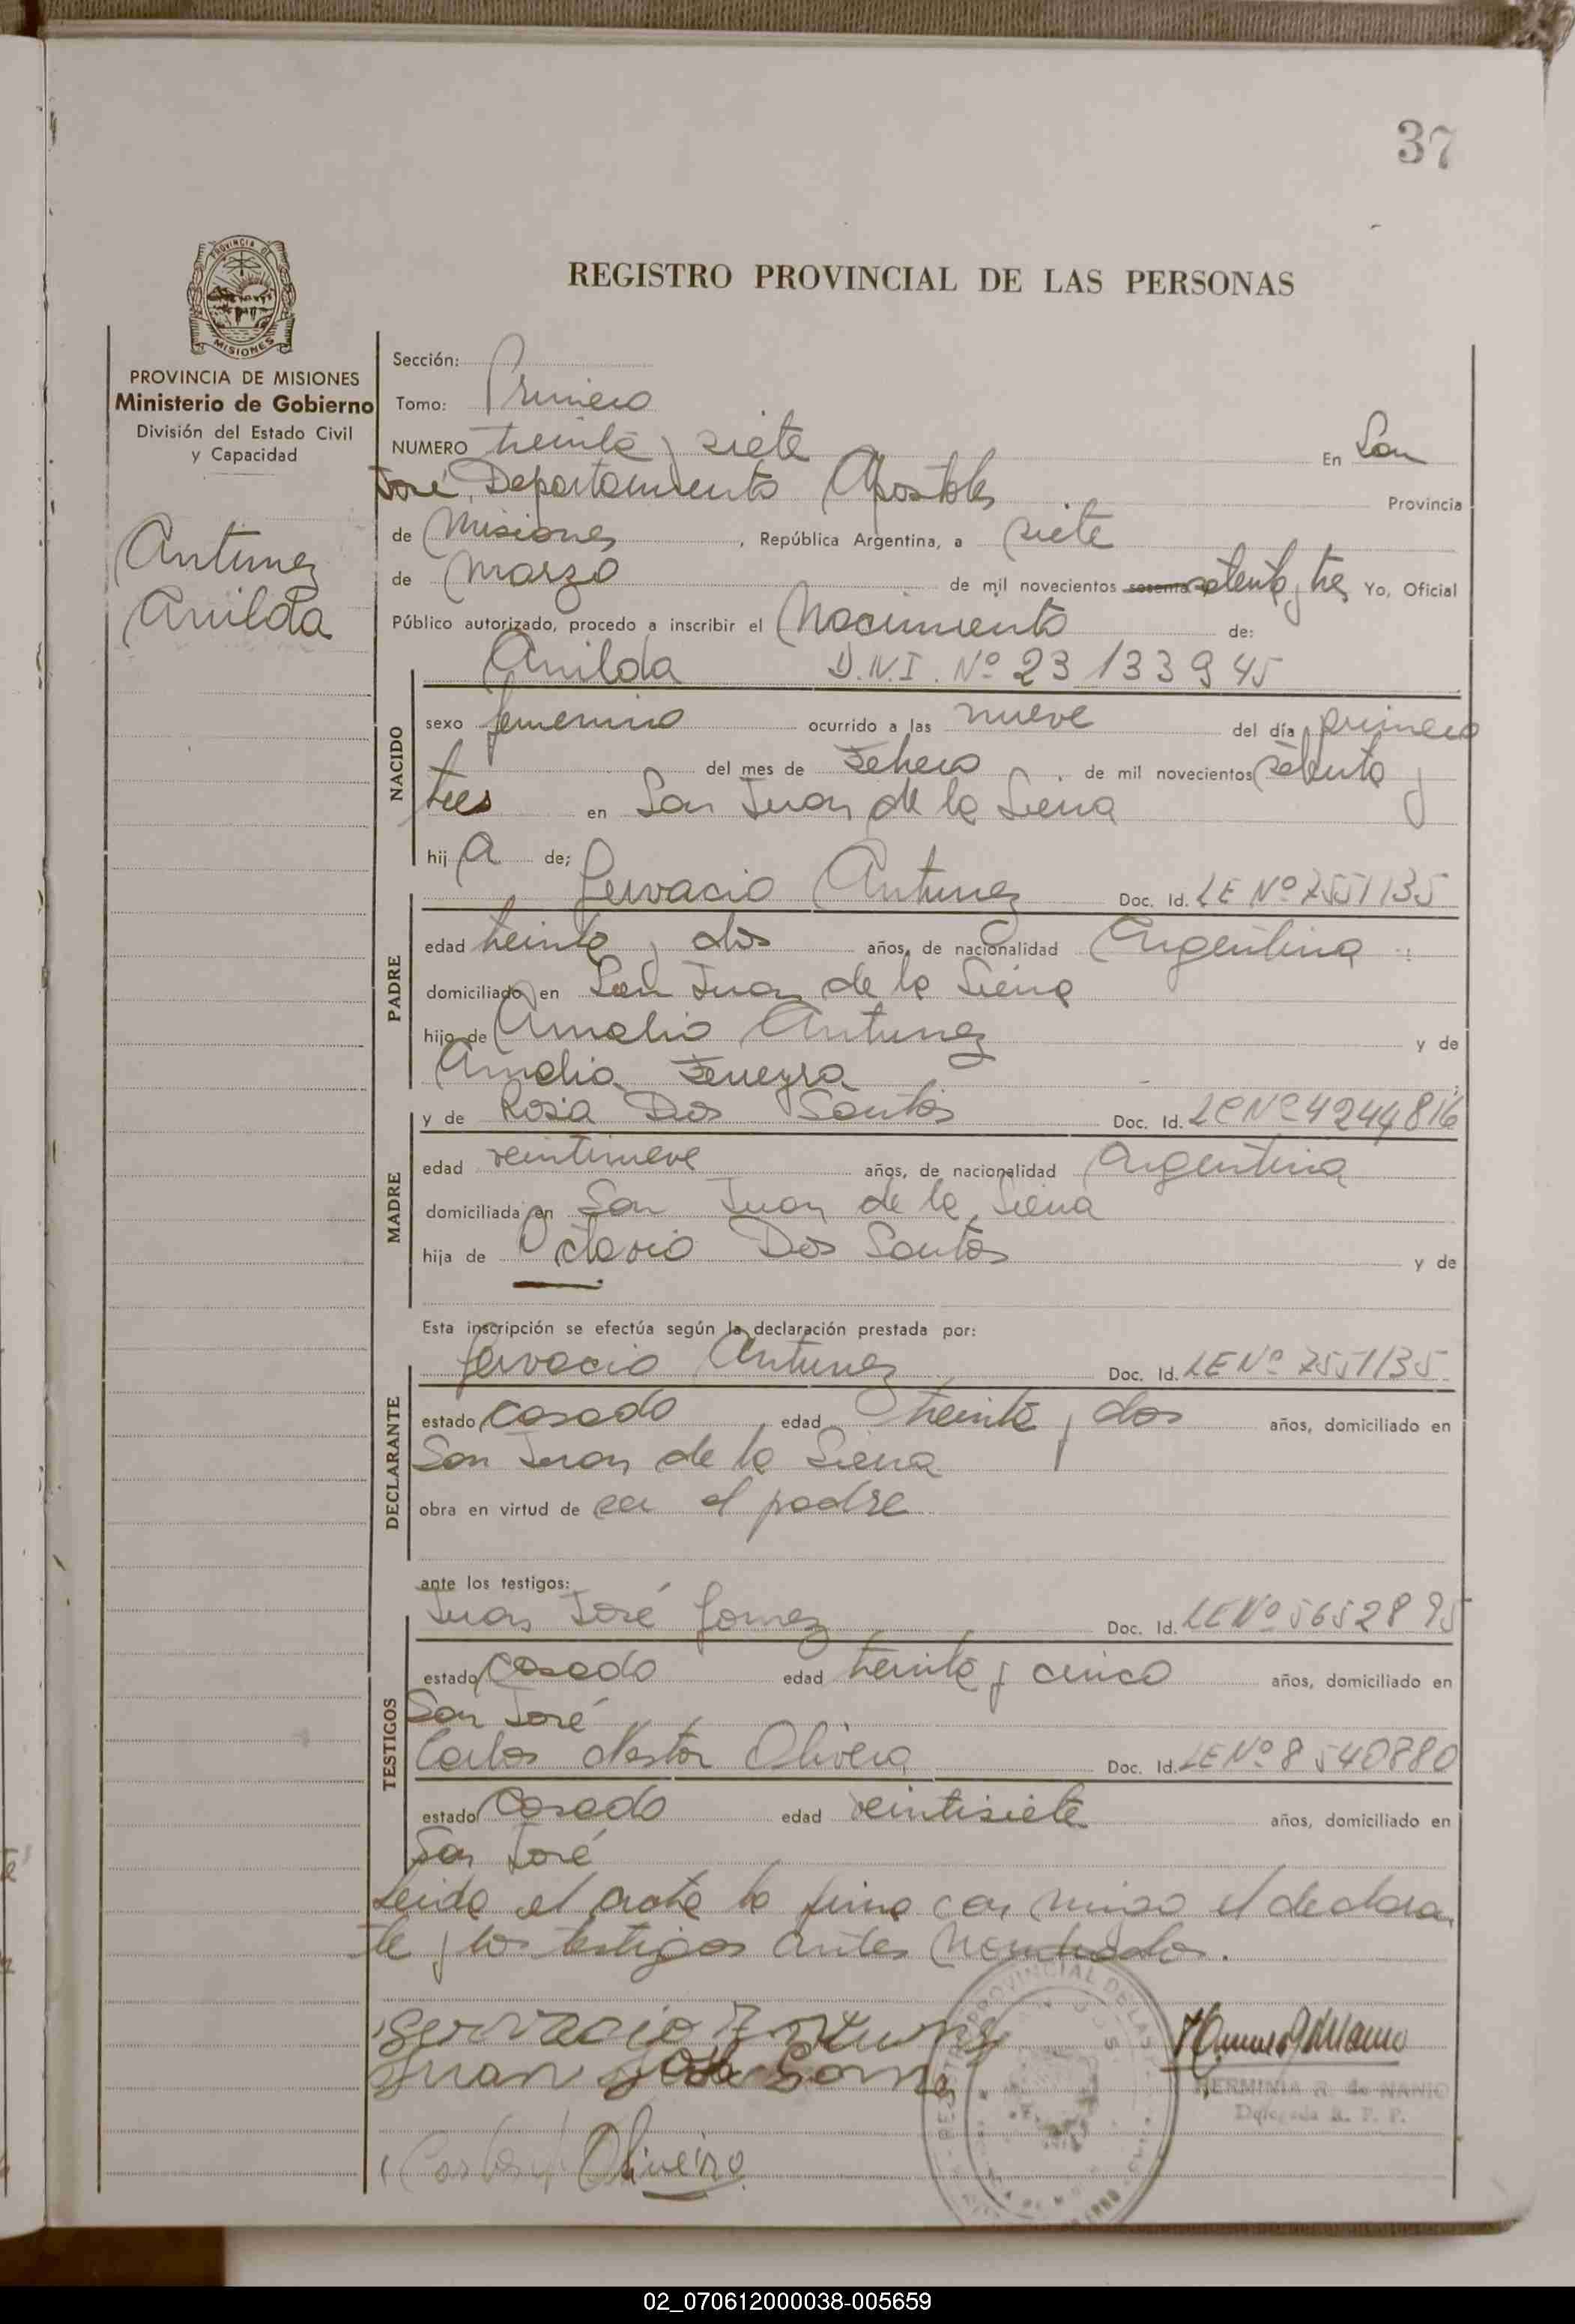 37
PROVINCIA DE
MISIONES
REGISTRO PROVINCIAL DE LAS PERSONAS
PROVINCIA DE MISIONES
Ministerio de Gobierno
División del Estado Civil
y Capacidad
Antunez
Anilda
Sección:
Tomo: Primero
NUMERO treinta y siete En San
José, Departamento Apostoles Provincia
de Misiones, República Argentina, a siete
de Marzo de mil novecientos sesenta y setenta y tres Yo, Oficial
Público autorizado, procedo a inscribir el Nacimiento de:
Anilda D.N.I. Nº 23133945
NACIDO
sexo femenino ocurrido a las nueve del día primero
del mes de Febrero de mil novecientos setenta y
tres en San Juan de la Sierra
hij a de;
Gervacio Antunez Doc. Id. LE Nº 7551135
PADRE
edad treinta y dos años, de nacionalidad Argentina
domiciliado en San Juan de la Sierra
hijo de Amalio Antunez y de
Amalia Ferreyra
MADRE
y de Rosa Dos Santos Doc. Id. LC Nº 4244816
edad veintinueve años, de nacionalidad Argentina
domiciliada en San Juan de la Sierra
hija de Octavio Dos Santos y de
Esta inscripción se efectúa según la declaración prestada por:
DECLARANTE
Gervacio Antunez Doc. Id. LE Nº 7551135
estado casado edad treinta y dos años, domiciliado en
San Juan de la Sierra
obra en virtud de ser el padre
ante los testigos:
TESTIGOS
Juan José Gomez Doc. Id. LE Nº 5652895
estado casado edad treinta y cinco años, domiciliado en
San José
Carlos Nestor Olivera Doc. Id. LE Nº 8540880
estado casado edad veintisiete años, domiciliado en
San José
Leida el acta la firma con migo el declaran
te y los testigos antes nombrados.
Gervacio Antunez
Juan José Gomez
Carlos Oliveira
HERMINIA R. de NANIO
Delegada R. P. P.
02_070612000038-005659